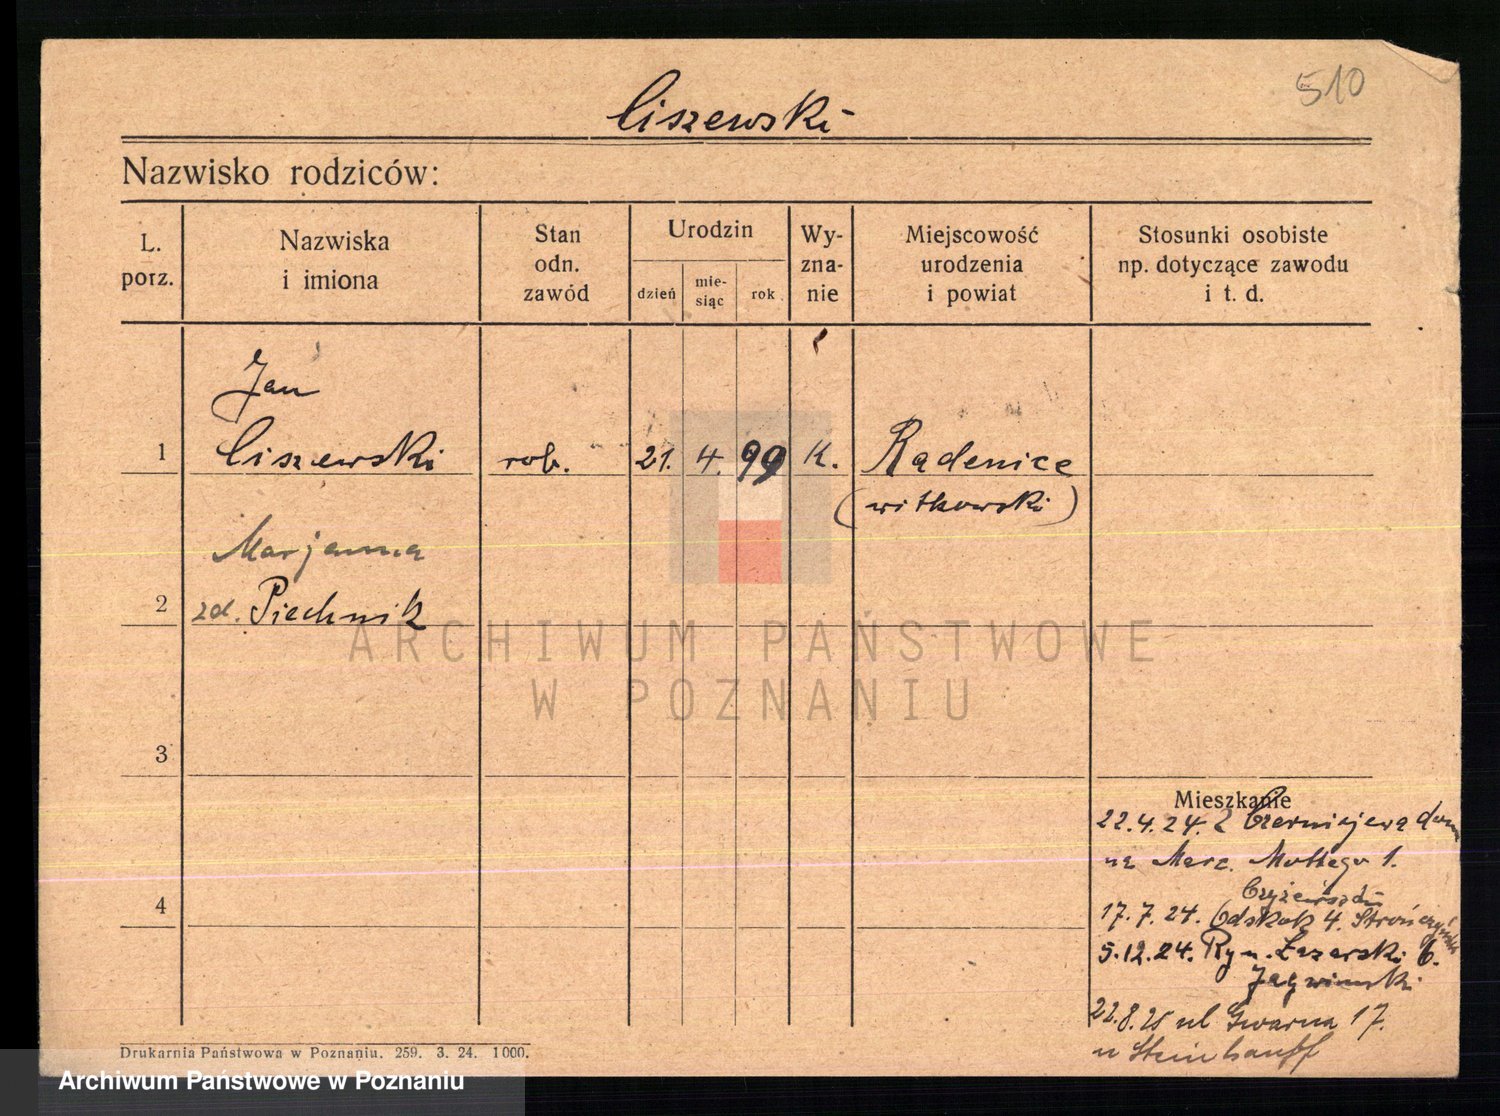 510
Ciszewski
Nazwisko rodziców:
L. porz.
Nazwiska i imiona
Stan odn. zawód
Urodzin
dzień
mie-siąc
rok
Wy-zna-nie
Miejscowość urodzenia i powiat
Stosunki osobiste np. dotyczące zawodu i t. d.
Jan
1 Ciszewski rob. 21. 4. 99 K. Radenice
(witkowski)
Marjanna
2 zd. Piechnik
ARCHIWUM PAŃSTWOWE
W POZNANIU
3
Mieszkanie
22.4.24. z Czerniejewa
na Marc. Mottego 1.
4
17.7.24. 4.
5.12.24. Ryn. Łazarski 6.
22.8.25 ul Gwarna 17.
u Steinhauff
Drukarnia Państwowa w Poznaniu. 259. 3. 24. 1000.
Archiwum Państwowe w Poznaniu